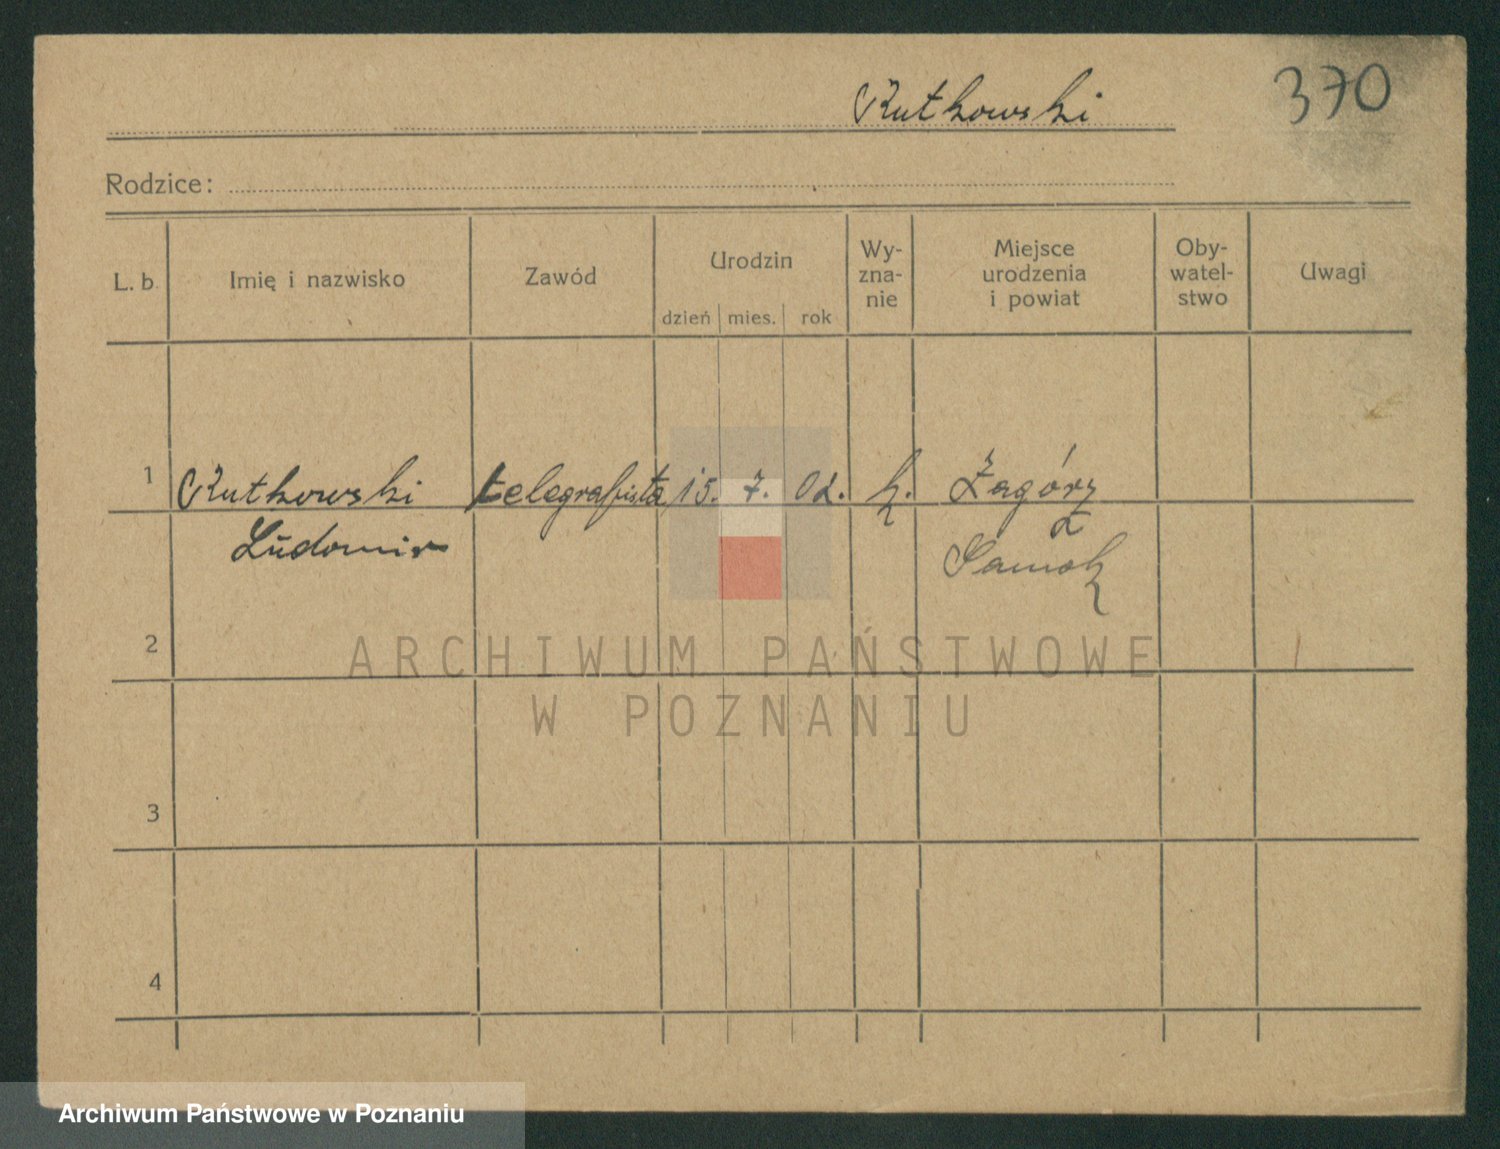 Rutkowski
370
Rodzice:
L. b.
Imię i nazwisko
Zawód
Urodzin
dzień mies. rok
Wy-
zna-
nie
Miejsce
urodzenia
i powiat
Oby-
watel-
stwo
Uwagi
1 Rutkowski telegrafista 15. 7. 02. k. Zagórz
Ludomir
Sanok
2
ARCHIWUM PAŃSTWOWE
W POZNANIU
3
4
Archiwum Państwowe w Poznaniu